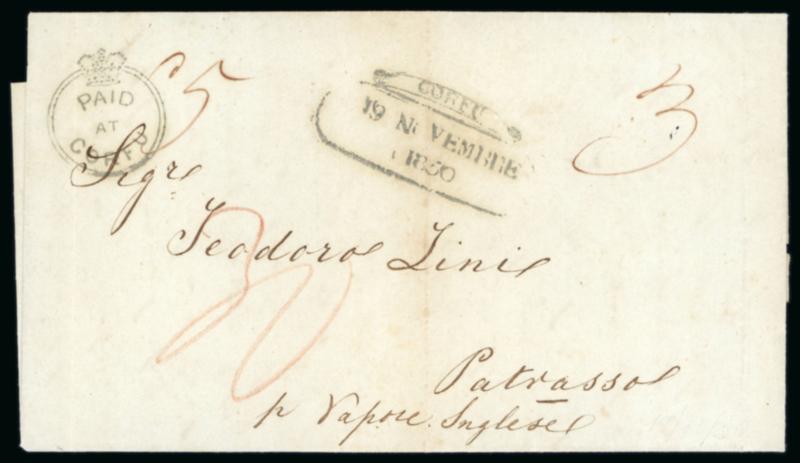 PAID
AT
CORFU
65
CORFU
19 NOVEMBRE
1850
3
Sigre
Teodoro Zini
Patrasso
p Vapore Inglese